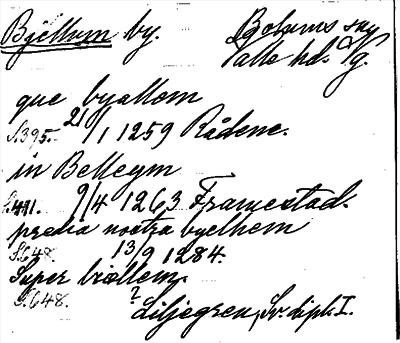 Bjellum by. Bohems sn
Valle hd. Sg.
que byallom
S.395. 21/1 1259 Rådene.
in Belleym
S.441. 9/4 1263 Framestad.
predia nostra byelhem
S.648. 13/9 1284.
Super biællem.
S.648. ? Liljegren, Sv. dipl. I.